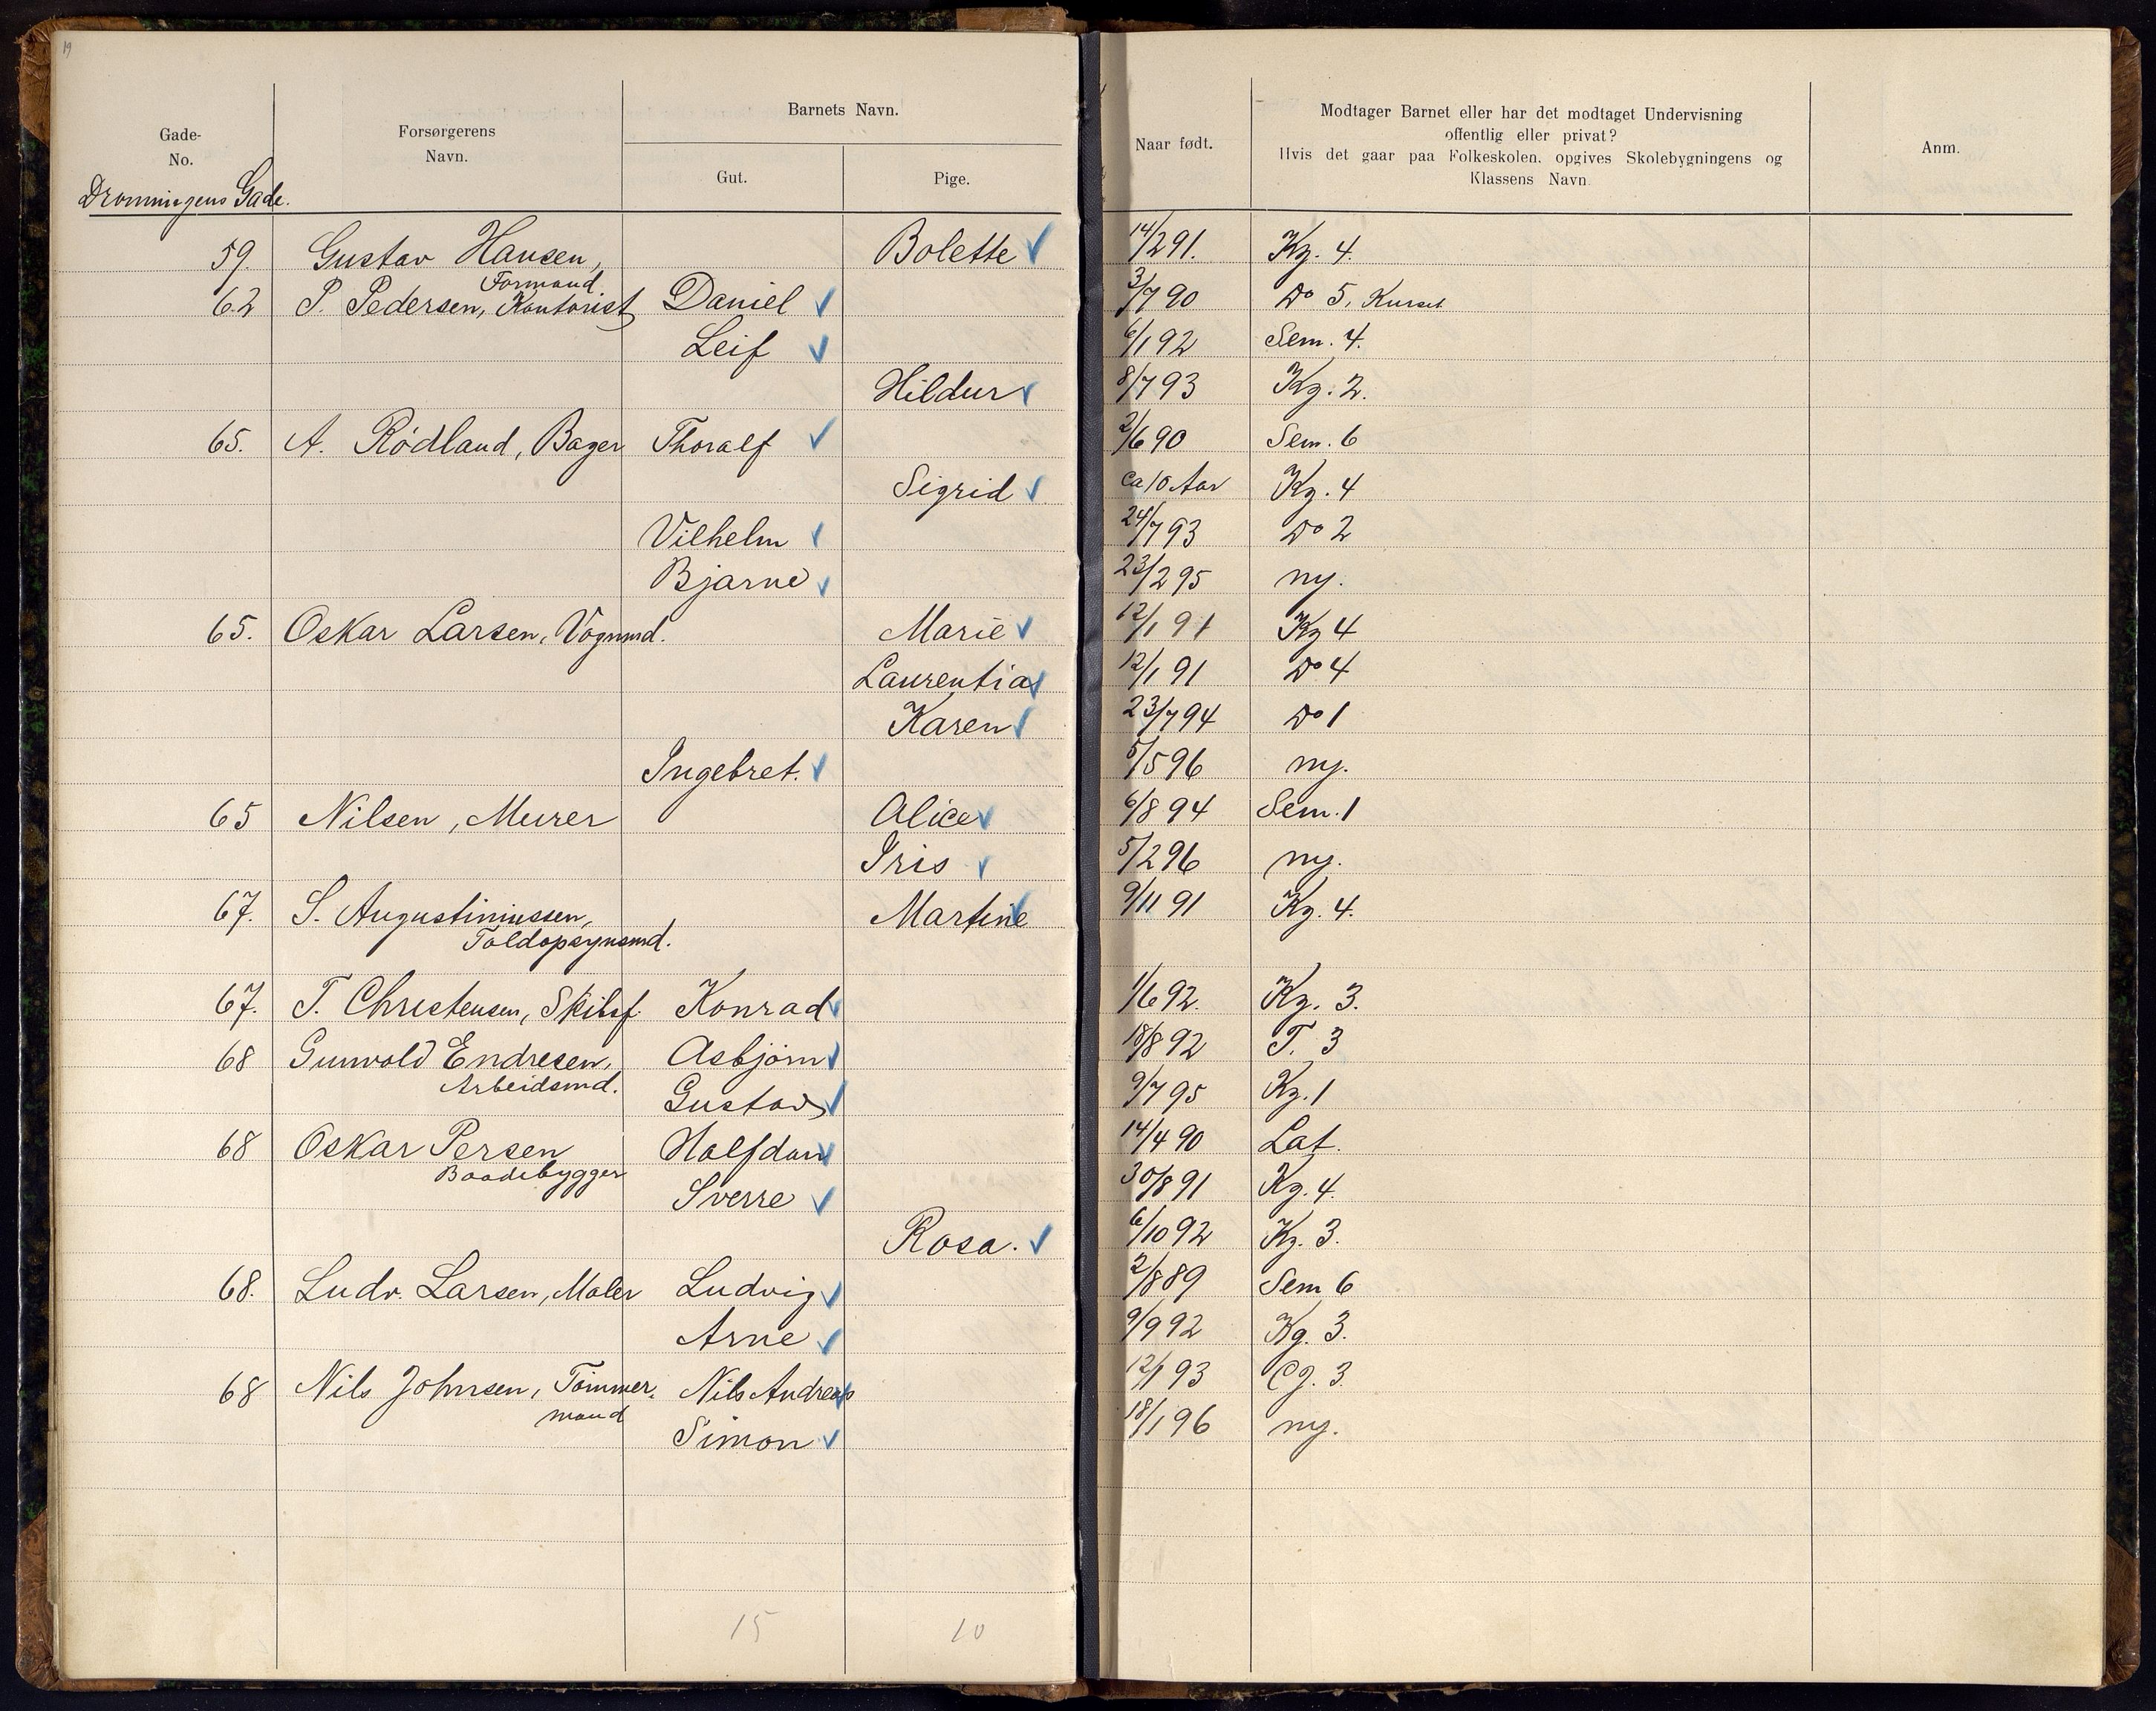 19
Gade-
No.
Forsørgerens
Navn.
Barnets Navn.
Gut.
Pige.
Naar født.
Modtager Barnet eller har det modtaget Undervisning
offentlig eller privat?
Hvis det gaar paa Folkeskolen, opgives Skolebygningens og
Klassens Navn.
Anm.
Dronningens Gade.
59. Gustav Hansen, Bolette 14/2 91. Kg. 4.
Formand.
62 P. Pedersen, Kontorist Daniel 3/7 90 Do 5, Kurset
Leif 6/1 92 Sem. 4.
Hildur 8/7 93 Kg. 2.
65. A. Rødland, Bager Thoralf 2/6 90 Sem. 6
Sigrid ca 10 Aar Kg. 4
Vilhelm 24/7 93 Do 2
Bjarne 23/2 95 ny.
65. Oskar Larsen, Vognmd. Marie 12/1 91 Kg 4
Laurentia 12/1 91 Do 4
Karen 23/7 94 Do 1
Ingebret. 5/5 96 ny.
65 Nilsen, Murer Alice 6/8 94 Sem. 1
Iris 5/2 96 ny.
67. S. Augustiniussen, Martine 9/11 91 Kg. 4.
Toldopsynsmd.
67. T. Christensen, Skibsf. Konrad 1/6 92. Kg. 3.
68 Gunvold Endresen, Asbjörn 18/8 92 T. 3
Arbeidsmd. Gustav 9/7 95 Kg. 1
68 Oskar Persen Halfdan 14/4 90 Lat.
Baadebygger
Sverre 30/8 91 Kg. 4.
Rosa. 6/10 92 Kg. 3.
68. Ludv. Larsen, Maler Ludvig 2/8 89 Sem 6
Arne 9/9 92 Kg. 3.
68 Nils Johnsen, Tømmer- Nils Andreas 12/1 93 Kg. 3
mand
Simon 18/1 96 ny.
15 10